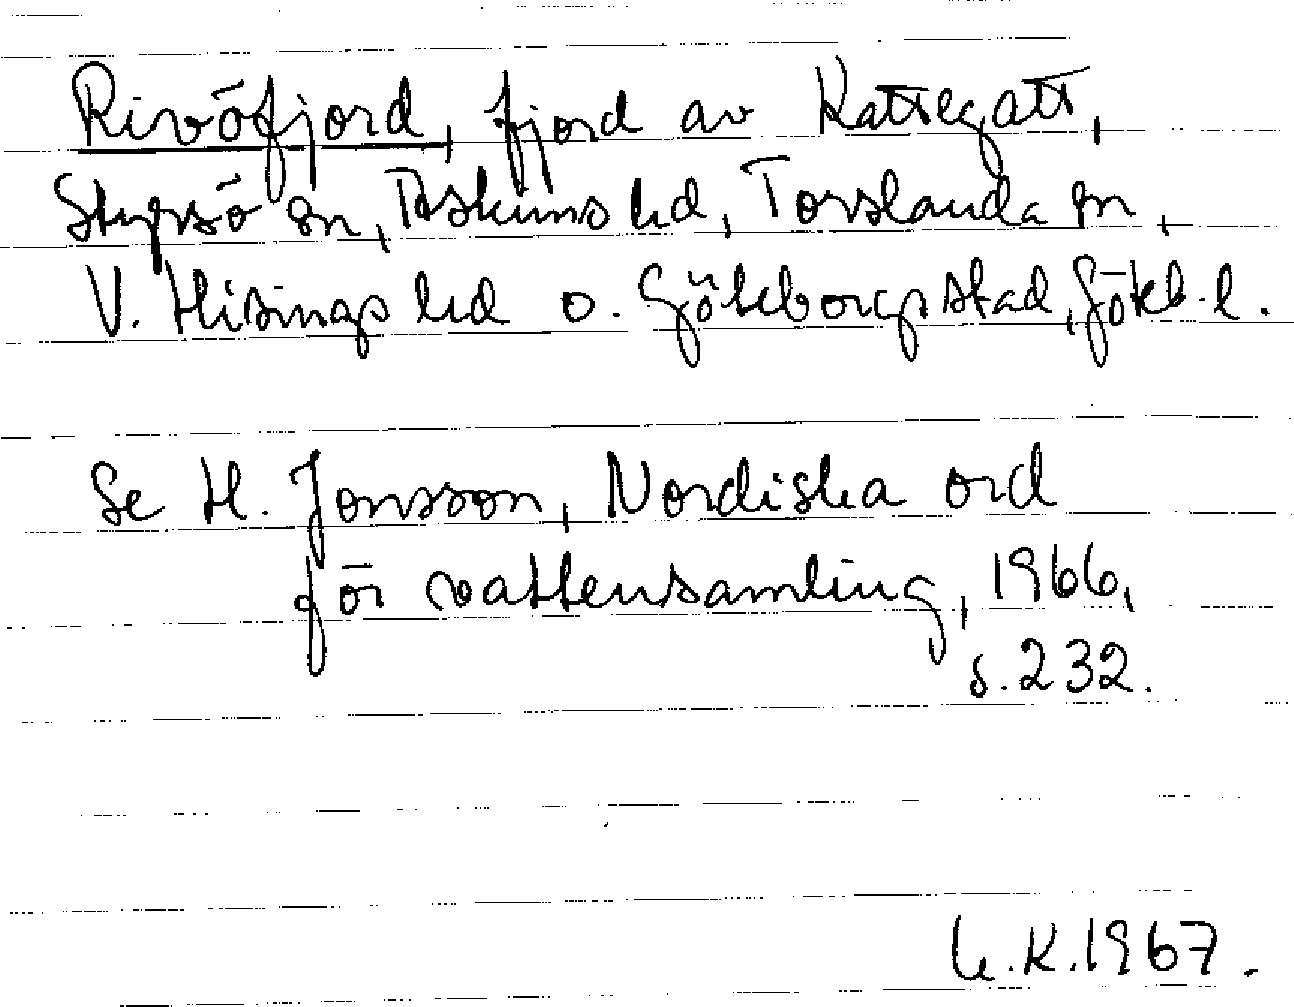 Rivöfjord, fjord av Kattegatt,
Styrsö sn, Askims hd, Torslanda sn,
V. Hisings hd o. Göteborgs stad, Göteb. l.
Se H. Jonsson, Nordiska ord
för vattensamling, 1966,
s. 232.
K. 1967.